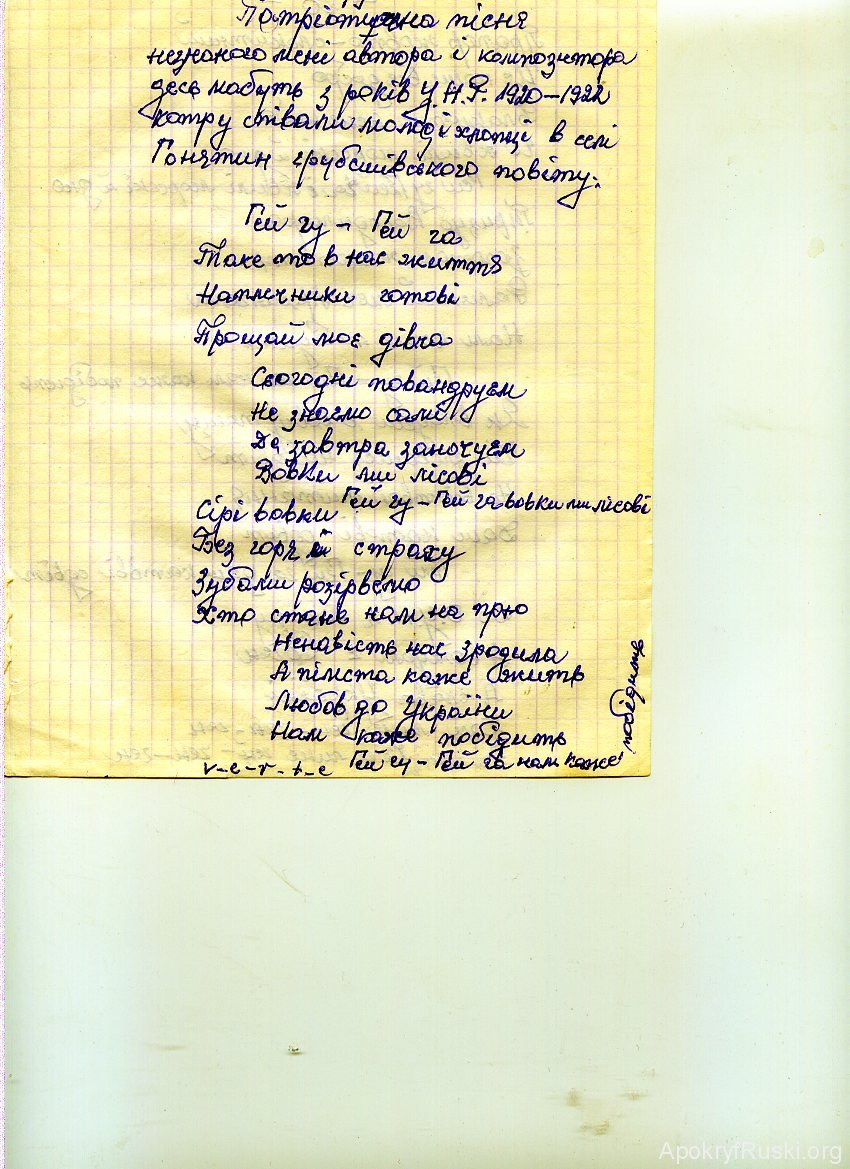 Патріотична пісня
незнаного мені автора і композитора
десь мабуть з років У.Н.Р. 1920–1922
котру співали молоді хлопці в селі
Гонятин грубешівського повіту:
Гей гу – Гей га
Таке то в нас життя
Наплєчники готові
Прощай моє дівча
Сьогодні повандруєм
Не знаємо самі
Де завтра заночуєм
Вовки ми лісові
Гей гу – Гей га вовки ми лісові
Сірі вовки
Без горя й страху
Зубами розірвемо
Хто стане нам на прю
Ненавість нас зродила
А пімста каже жить
Любов до України
Нам каже побідить
Гей гу – Гей га нам каже побідить
v–e–r–t–e
ApokryfRuski.org